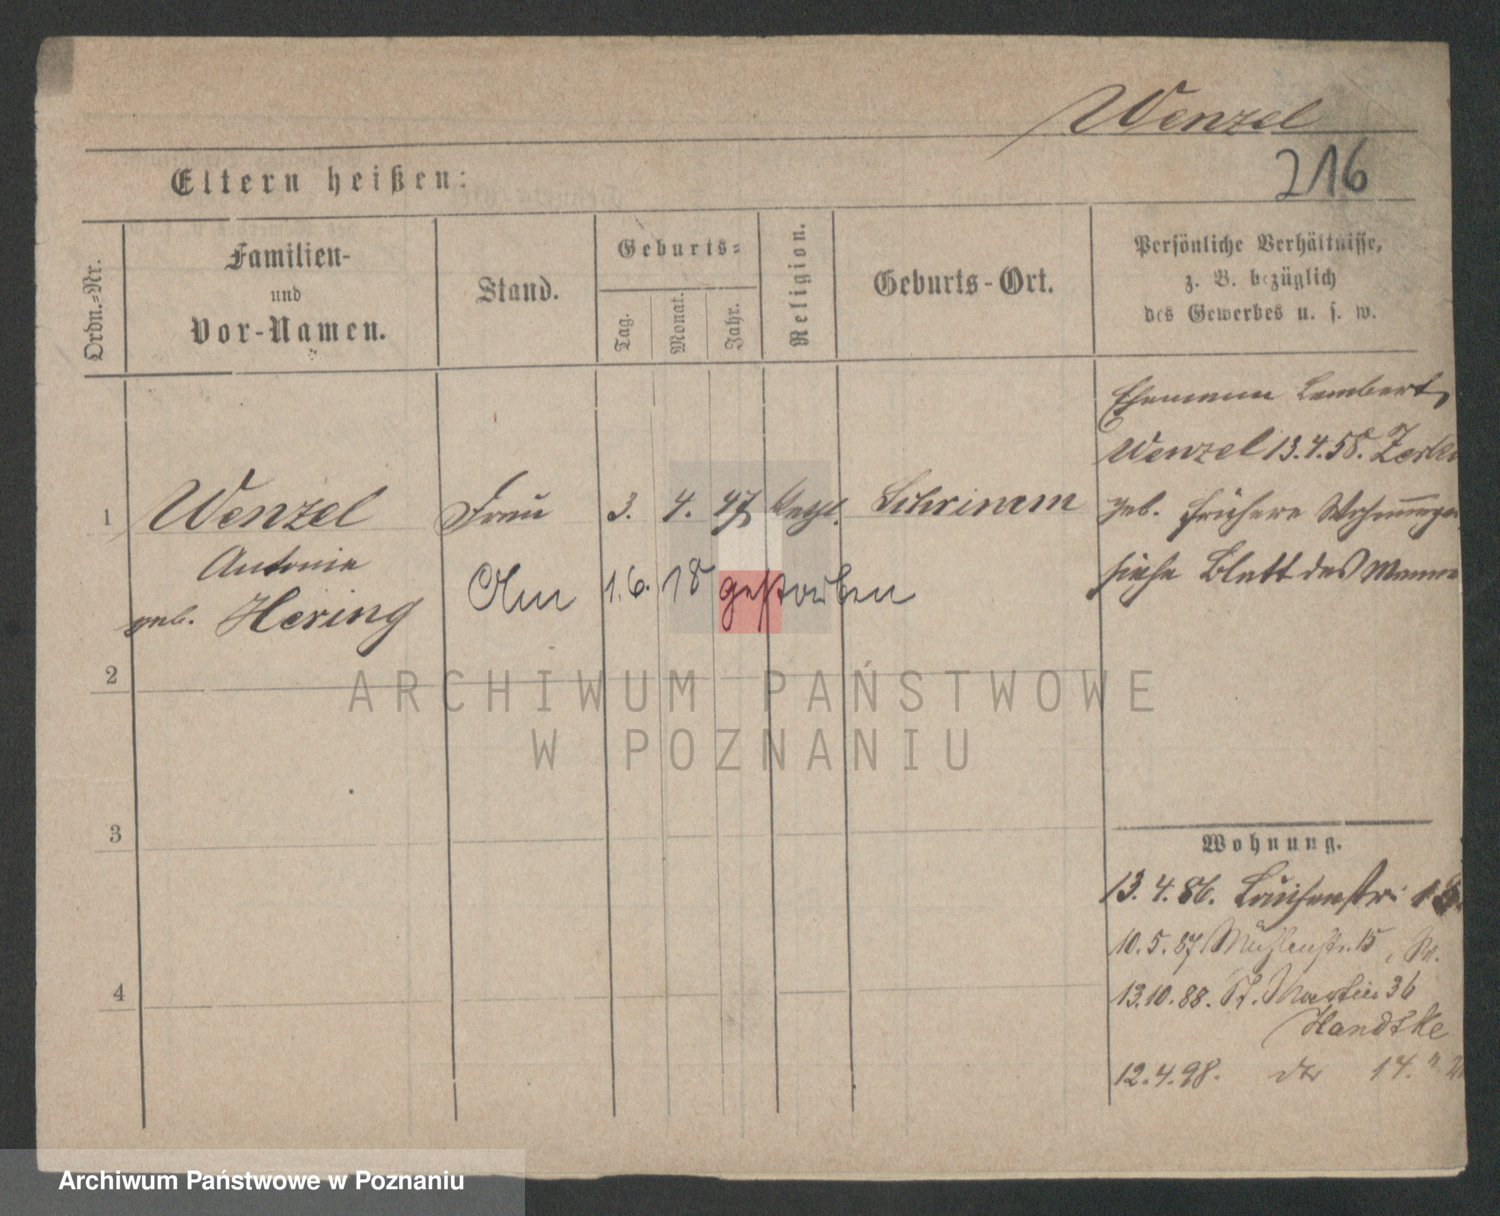 Wenzel
216
Eltern heißen:
Ordn.=Nr.
Familien-
und
Vor-Namen.
Stand.
Geburts=
Tag.
Monat.
Jahr.
Religion.
Geburts-Ort.
Persönliche Verhältnisse,
z. B. bezüglich
des Gewerbes u. s. w.
Ehemann Lambert
Wenzel 13.4.58.
geb. frühere Wohnungen
siehe Blatt des Mannes
1 Wenzel Frau 3. 4. 47 Schrimm
Antonie
geb. Hering
Am 1.6.18 gestorben
2
3
4
ARCHIWUM PAŃSTWOWE
W POZNANIU
Wohnung.
13.4.86. Louisenstr.
10.5.87 Mühlenstr. 15
13.10.88. St. Martin 36
Handtke
12.4.98. 14.
Archiwum Państwowe w Poznaniu